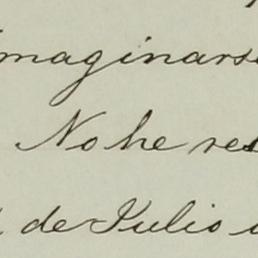 imaginarse
No he re
de Julio